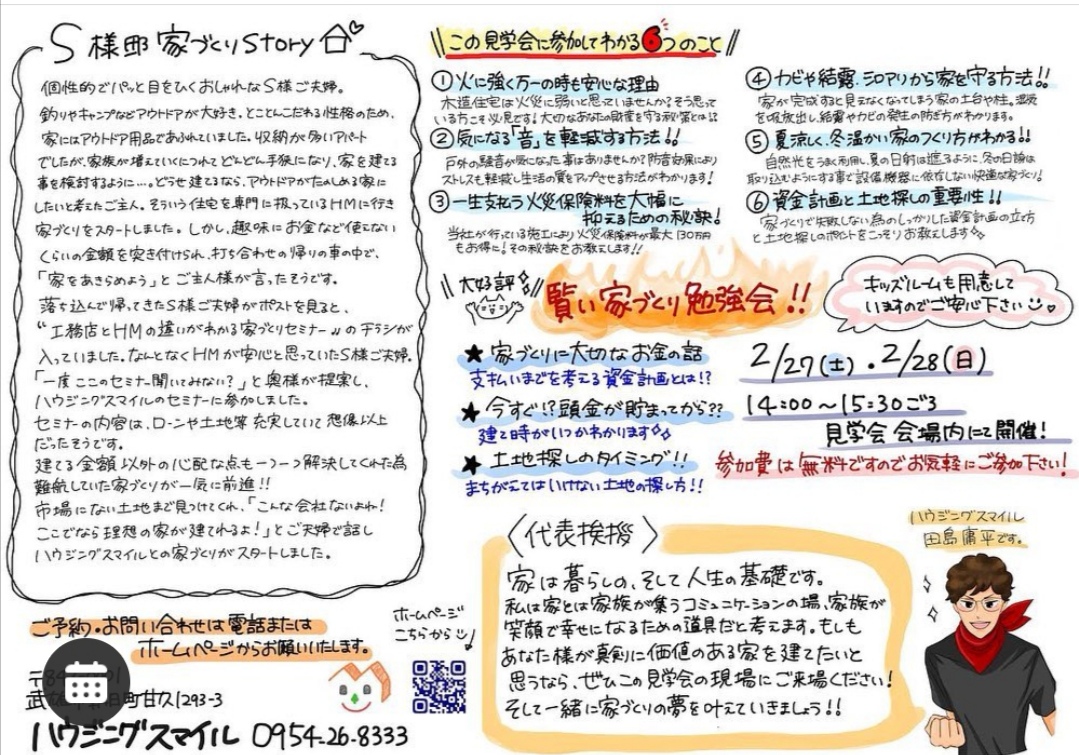 S様邸 家づくりStory
個性的でパッと目をひくおしゃれなS様ご夫婦。
釣りやキャンプなどアウトドアが大好き、とことんこだわる性格のため、
家にはアウトドア用品であふれていました。収納が多いアパート
でしたが、家族が増えていくにつれてどんどん手狭になり、家を建てる
事を検討するように…。どうせ建てるなら、アウトドアがたのしめる家に
したいと考えたご主人。そういう住宅を専門に扱っているHMに行き
家づくりをスタートしました。しかし、趣味にお金など使えない
くらいの金額を突き付けられ、打ち合わせの帰りの車の中で、
「家をあきらめよう」とご主人様が言ったそうです。
落ち込んで帰ってきたS様ご夫婦がポストを見ると、
“工務店とHMの違いがわかる家づくりセミナー〟のチラシが
入っていました。なんとなくHMが安心と思っていたS様ご夫婦。
「一度ここのセミナー聞いてみない?」と奥様が提案し、
ハウジングスマイルのセミナーに参加しました。
セミナーの内容は、ローンや土地等充実していて想像以上
だったそうです。
建てる金額以外の心配な点も一つ一つ解決してくれた為
難航していた家づくりが一気に前進!!
市場にない土地まで見つけてくれ、「こんな会社ないよね!
ここでなら理想の家が建てれるよ!」とご夫婦で話し
ハウジングスマイルとの家づくりがスタートしました。
ご予約・お問い合わせは電話または
ホームページからお願いいたします。
ホームページ
こちらから
町甘久1293-3
ハウジングスマイル 0954-26-8333
\\この見学会に参加してわかる6つのこと//
①火に強く万一の時も安心な理由
木造住宅は火災に弱いと思っていませんか?そう思って
いる方こそ必見です!大切なあなたの財産を守る秘策とは!?
②気になる「音」を軽減する方法!!
戸外の騒音が気になった事はありませんか?防音効果により
ストレスも軽減し生活の質をアップさせる方法がわかります!
③一生支払う火災保険料を大幅に
抑えるための秘訣!
当社が行っている施工により火災保険料が最大130万円
もお得に!その秘訣をお教えします!!
④カビや結露、シロアリから家を守る方法!!
家が完成すると見えなくなってしまう家の土台や柱。湿気
を吸放出し、結露やカビの発生の防ぎ方がわかります。
⑤夏涼しく、冬温かい家のつくり方がわかる!!
自然光をうまく利用し、夏の日射は遮るように、冬の日射は
取り込むようにする事で設備機器に依存しない快適な家づくり!
⑥資金計画と土地探しの重要性!!
家づくりで失敗しない為のしっかりした資金計画の立方
と土地探しのポイントをこっそりお教えします
\\大好評// 賢い家づくり勉強会!!
キッズルームも用意して
いますのでご安心下さい
★家づくりに大切なお金の話
支払いまでを考える資金計画とは!?
★今すぐ!?頭金が貯まってから??
建て時がいつかわかります
★土地探しのタイミング!!
まちがえてはいけない土地の探し方!!
2/27(土)・2/28(日)
14:00～15:30ごろ
見学会会場内にて開催!
参加費は無料ですのでお気軽にご参加下さい!
〈代表挨拶〉
家は暮らしの、そして人生の基礎です。
私は家とは家族が集うコミュニケーションの場、家族が
笑顔で幸せになるための道具だと考えます。もしも
あなた様が真剣に価値のある家を建てたいと
思うなら、ぜひこの見学会の現場にご来場ください!
そして一緒に家づくりの夢を叶えていきましょう!!
ハウジングスマイル
田島庸平です。